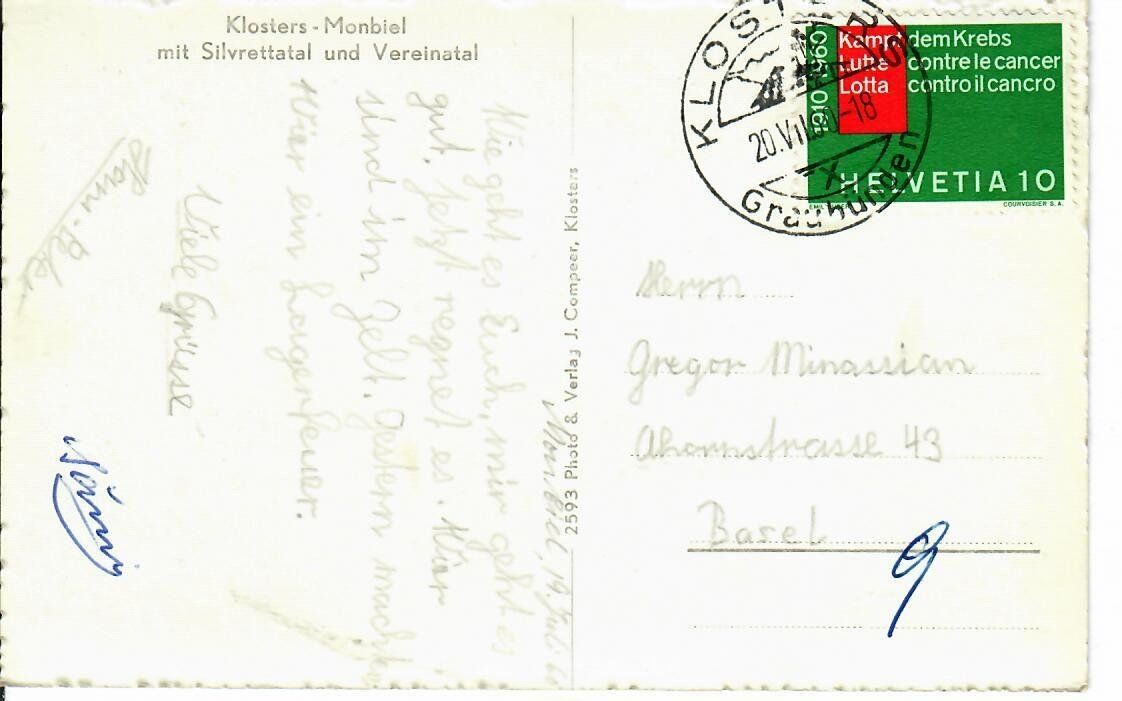 Klosters - Monbiel
mit Silvrettatal und Vereinatal
Monbiel, 19. Juli 60
Wie geht es Euch, mir geht es
gut. Jetzt regnet es. Wir
sind im Zelt. Gestern machten
Wir ein Lagerfeuer.
Viele Grüsse
2593 Photo & Verlag J. Compeer, Klosters
KLOSTERS
20.VII.60-18
Graubünden
1910 1960
Kampf dem Krebs
Lutte contre le cancer
Lotta contro il cancro
HELVETIA 10
COURVOISIER S.A.
Herrn
Gregor Minassian
Ahornstrasse 43
Basel
9